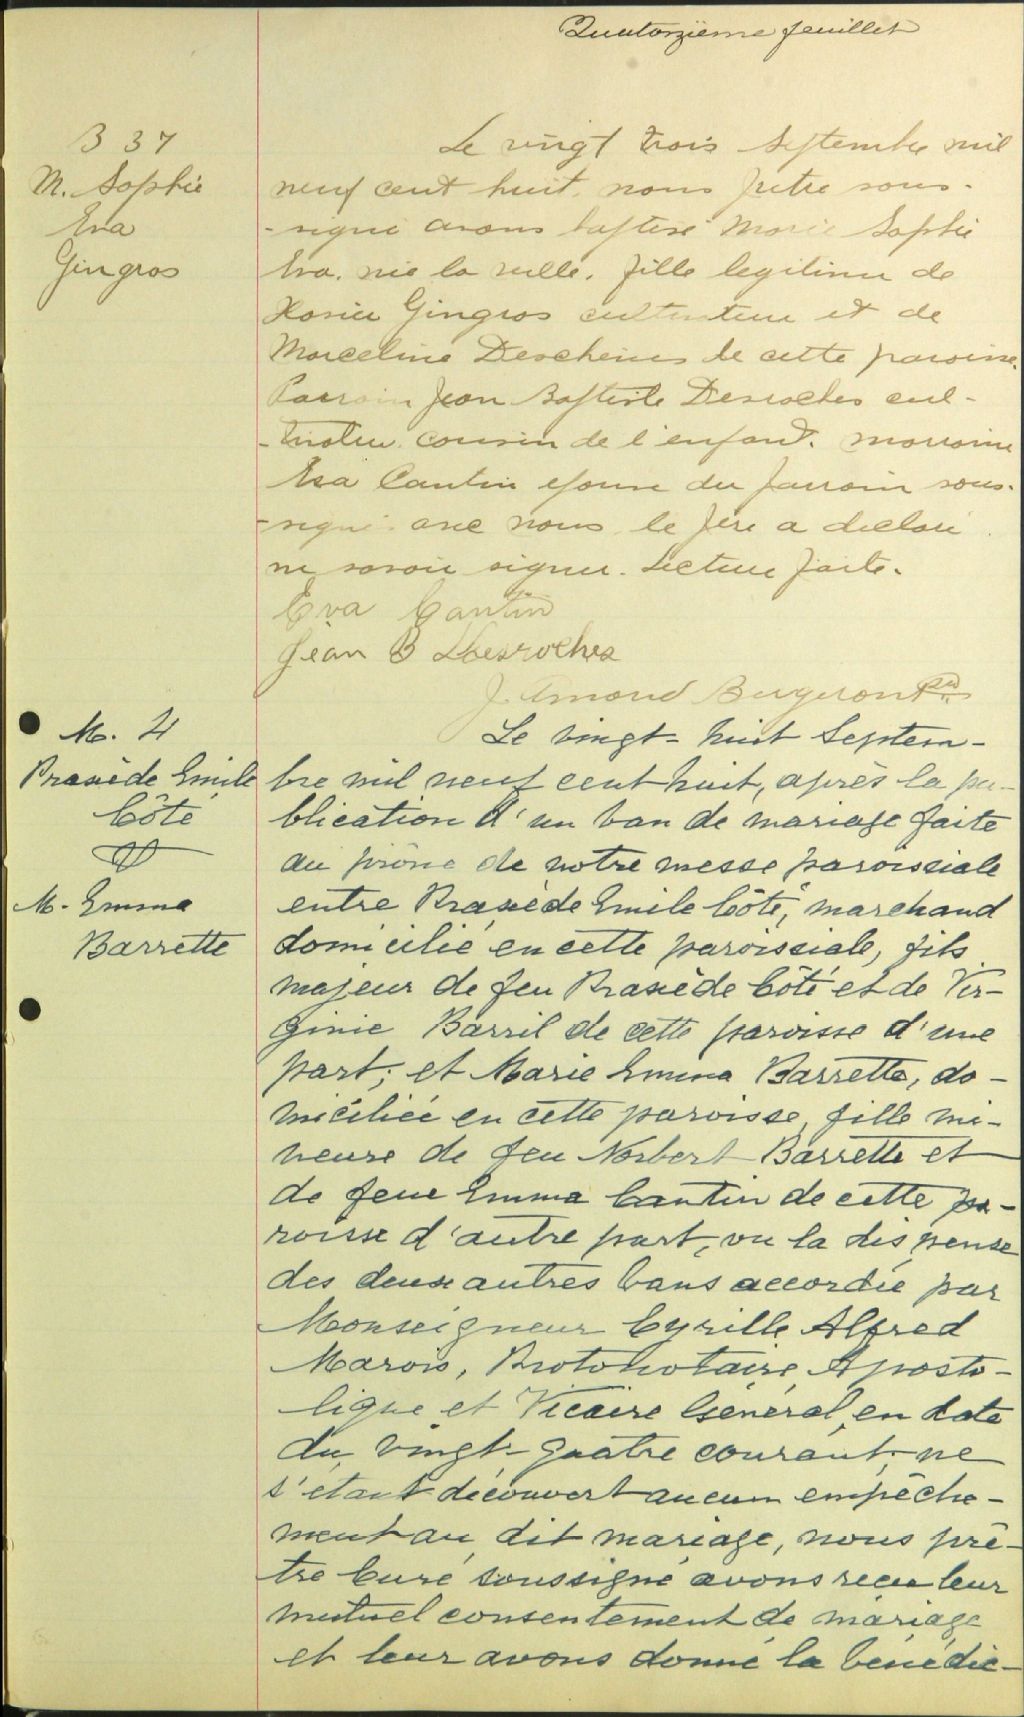 Quatorzième feuillet
B 37
M. Sophie
Eva
Gingras
Le vingt trois septembre mil
neuf cent huit, nous prêtre sous-
-signé avons baptisé Marie Sophie
Eva, née la veille, fille légitime de
Xavier Gingras cultivateur et de
Marceline Deschenes de cette paroisse.
Parrain Jean Baptiste Desroches cul-
-tivateur cousin de l'enfant. marraine
Eva Cantin épouse du parrain sous-
-signé avec nous le père a déclaré
ne savoir signer. Lecture faite.
Eva Cantin
Jean B Desroches
J. Amond Bergeron Ptre
M. 4
Praxède Emile
Côté
&
M. Emma
Barrette
Le vingt-huit Septem-
bre mil neuf cent huit, après la pu-
blication d'un ban de mariage faite
au prône de notre messe paroissiale
entre Praxède Emile Côté, marchand
domicilié en cette paroissiale, fils
majeur de feu Praxède Côté et de Vir-
ginie Barril de cette paroisse d'une
part; et Marie Emma Barrette, do-
miciliée en cette paroisse, fille mi-
neure de feu Norbert Barrette et
de feue Emma Cantin de cette pa-
roisse d'autre part, vu la dispense
des deux autres bans accordée par
Monseigneur Cyrille Alfred
Marois, Protonotaire Aposto-
lique et Vicaire Général, en date
du vingt-quatre courant; ne
s'étant découvert aucun empêche-
ment au dit mariage, nous prê-
tre Curé soussigné avons reçu leur
mutuel consentement de mariage
et leur avons donné la bénédic-